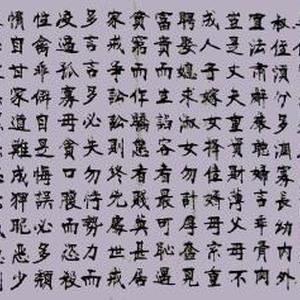 叔姪須分多潤寡長幼內外
宜法肅辭嚴聽婦言乖骨肉
豈是丈夫重貲財薄父母不
成人子嫁女擇佳婿毋索重
聘娶媳求淑女勿計厚奩見
富貴而生諂容者最可恥遇
貧窮而作驕態者賤莫甚居
家戒爭訟訟則終凶處世戒
多言言多必失勿恃勢力而
凌逼孤寡毋貪口腹而恣殺
牲禽乖僻自是悔誤必多頹
惰自甘家道難成狎暱惡少